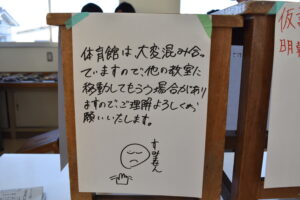 体育館は大変混み合っ
ていますので、他の教室に
移動してもらう場合があり
ますので、ご理解よろしくお
願いいたします。
すみません
仮
明朝